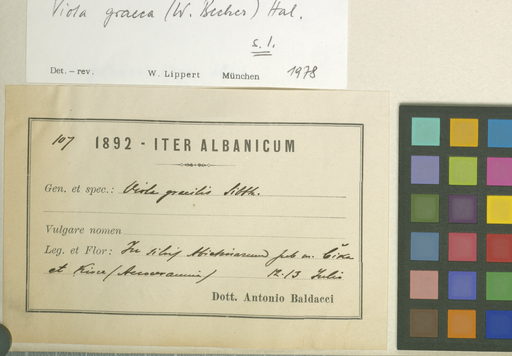 Viola graeca (W. Becker) Hal.
s. l.
Det. – rev. W. Lippert München 1978
107 1892 - ITER ALBANICUM
Gen. et spec.: Viola gracilis Sibth.
Vulgare nomen
Leg. et Flor: In silvis Abietinarum sub m. Čika
et Kiore (Acroceraunia) 12-13 Julio
Dott. Antonio Baldacci